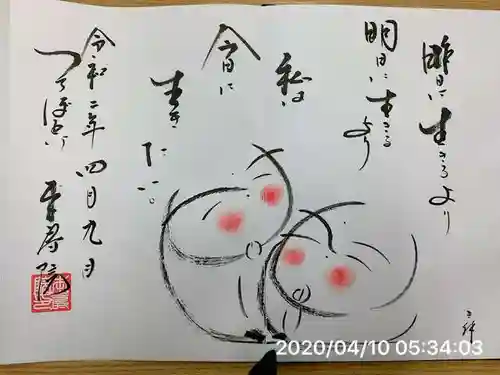 昨日に生きるより
明日に生きる
より
私は
今日に
生き
たい。
令和二年四月九日
つくばね 寿房院
2020/04/10 05:34:03